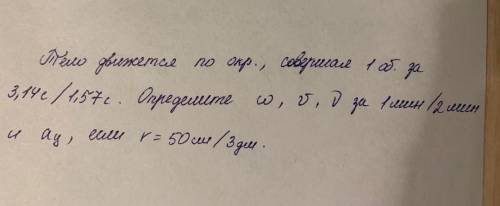 Тело движется по окр., совершая 1 об. за
3,14с/1,57с. Определите ω, υ, ν за 1мин/2мин
и aц, если r = 50см/3дм.